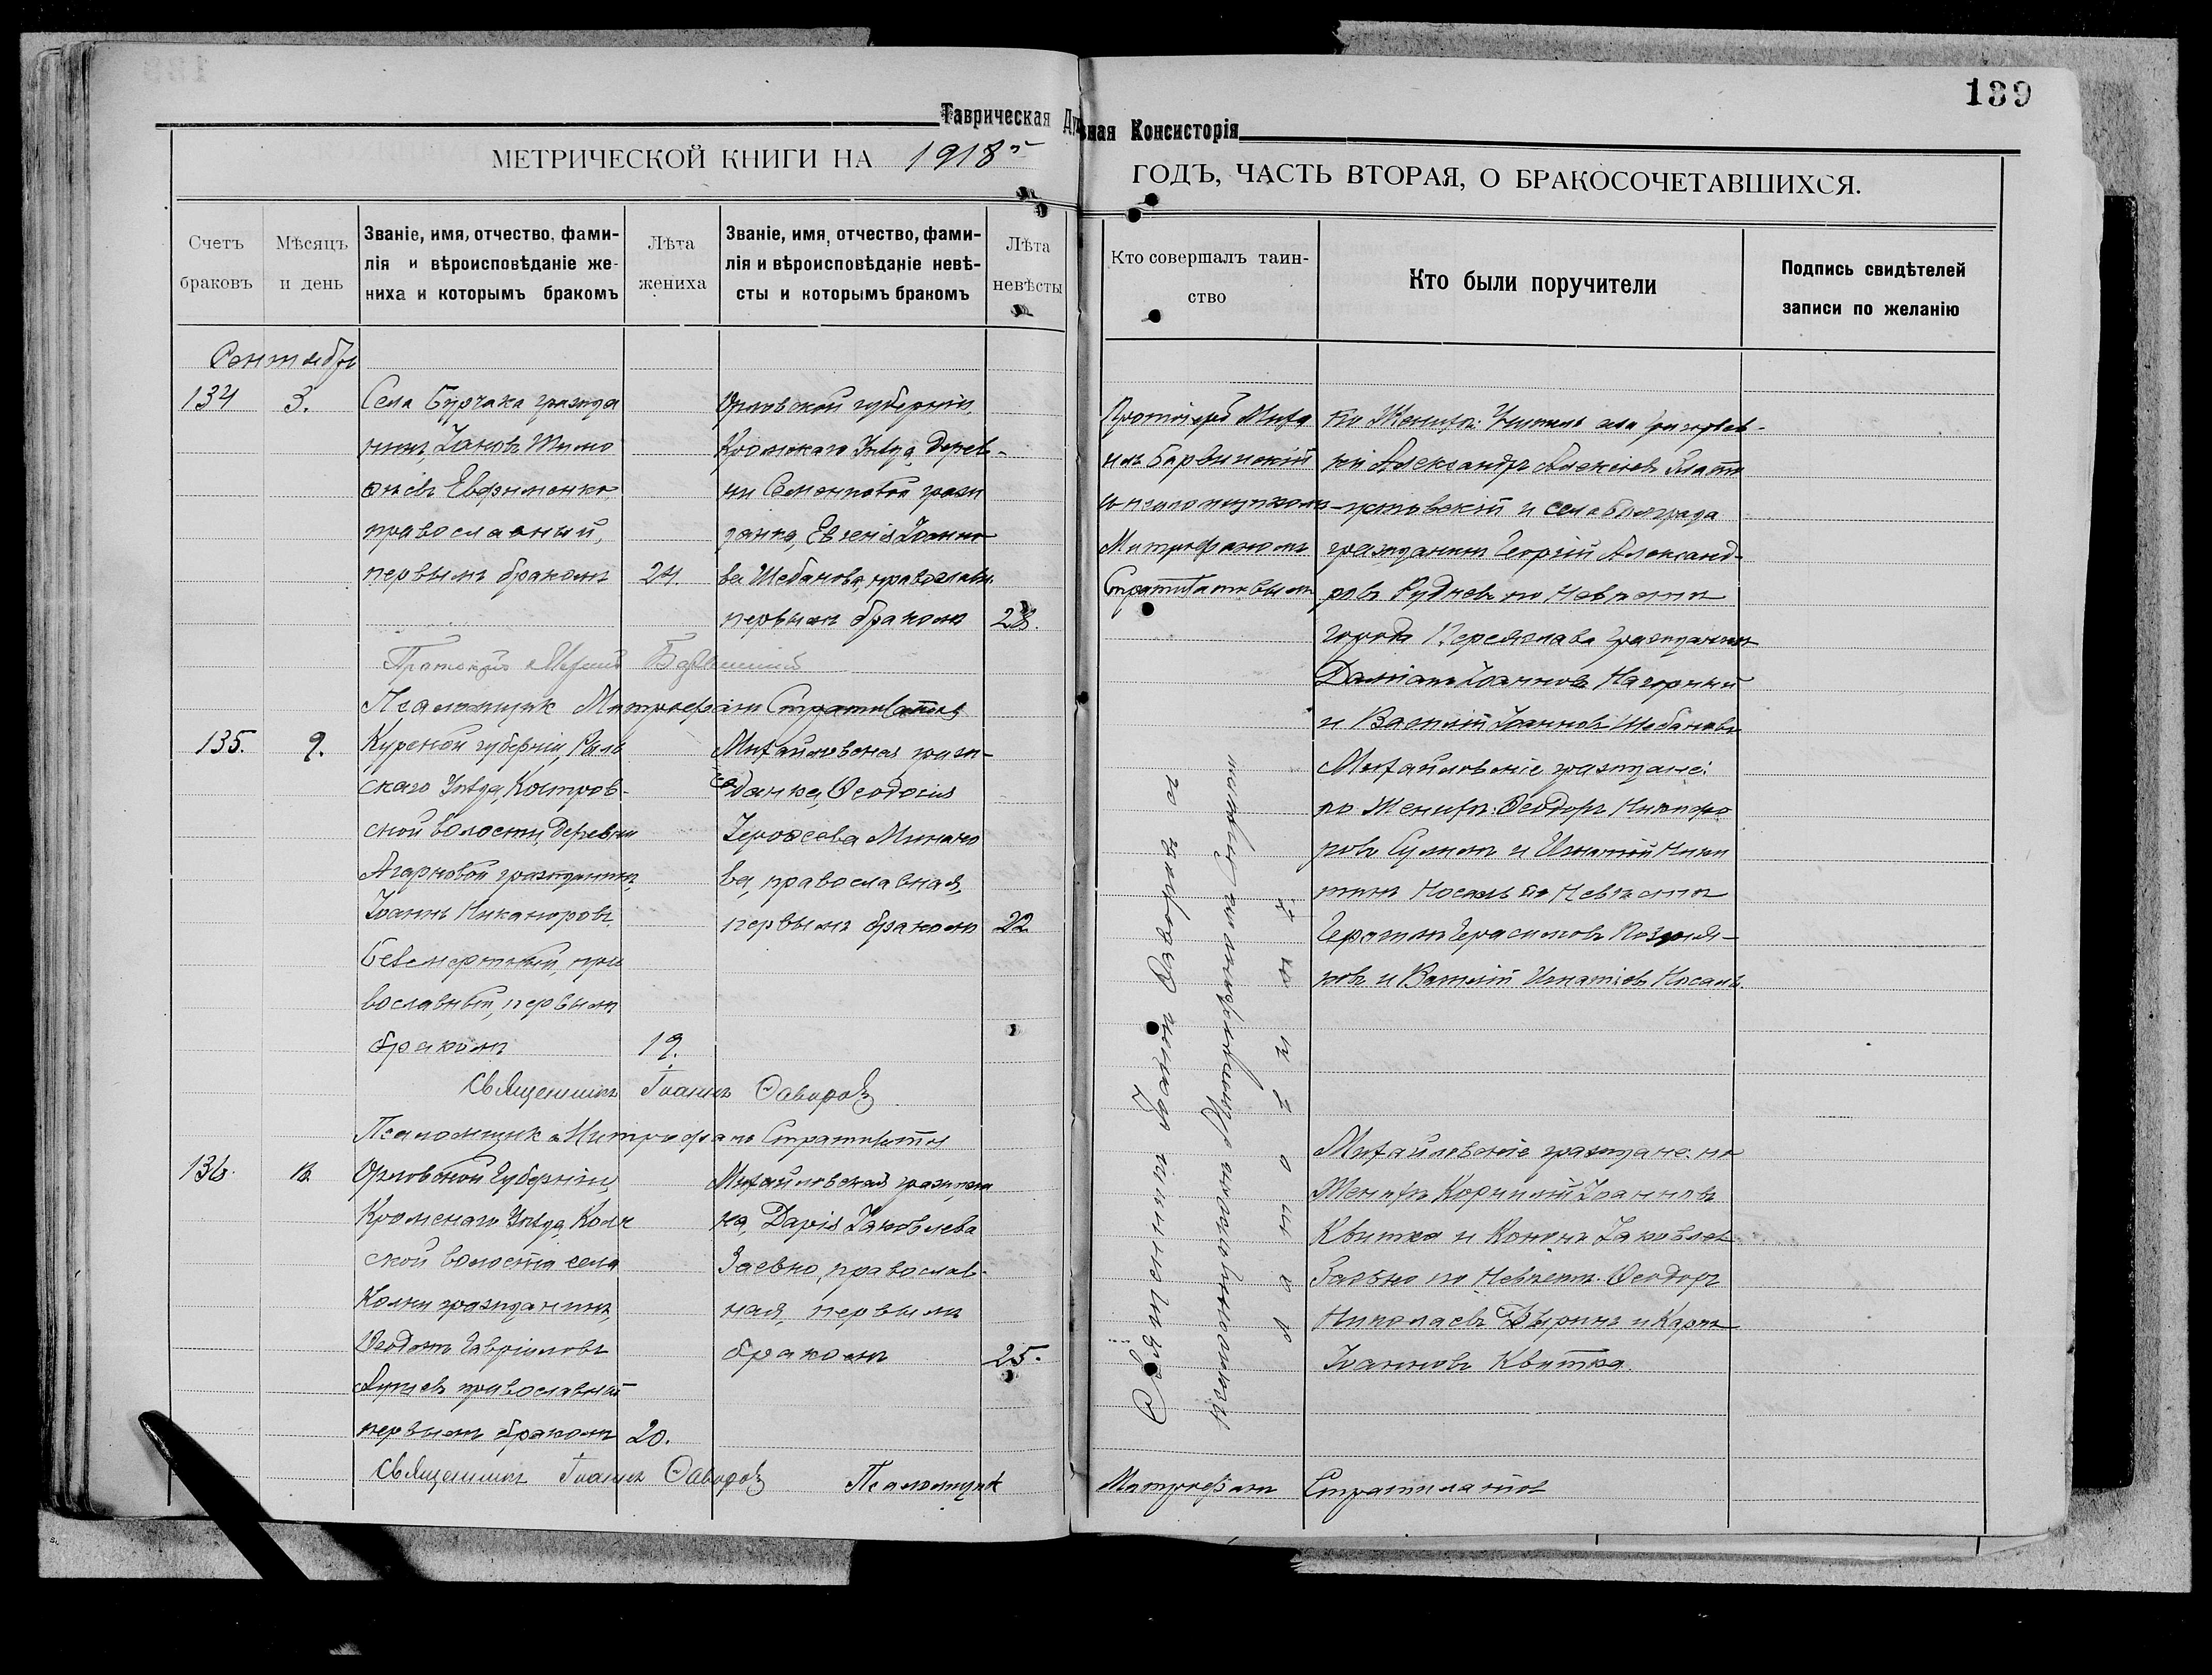 139
Таврическая Духовная Консисторія
МЕТРИЧЕСКОЙ КНИГИ НА 1918 ГОДЪ, ЧАСТЬ ВТОРАЯ, О БРАКОСОЧЕТАВШИХСЯ.
Счетъ браковъ
Мѣсяцъ и день
Званіе, имя, отчество, фами-
лія и вѣроисповѣданіе же-
ниха и которымъ бракомъ
Лѣта жениха
Званіе, имя, отчество, фами-
лія и вѣроисповѣданіе невѣ-
сты и которымъ бракомъ
Лѣта невѣсты
Кто совершалъ таин-
ство
Кто были поручители
Подпись свидѣтелей
записи по желанію
Сентябрь
134
3.
Села Бурчака гражда
нинъ, Іаковъ Тимо
ѳеевъ Евфименко
православный,
первымъ бракомъ
24.
Орловской губерніи,
Кромскаго Уѣзда, Дерев-
ни Семенковой граж
данка, Евгенія Іоанно
ва Шебанова, православн.
первымъ бракомъ
28.
Протоіерей Миха
илъ Барвинскій
и псаломщикомъ
Митрофаномъ
Стратилатовымъ
по Женихѣ: Учитель
Александръ Алексіевъ
и села
гражданинъ Георгій Александ-
ровъ Рудневъ по Невѣстѣ
города Переяслава гражданинъ
Даміанъ Іоанновъ Нагорный
и Василій Іоанновъ Шебановъ
Протоіерей Михаилъ Барвинскій
Псаломщик Митрофанъ Стратилатовъ
135.
9.
Курской губерніи, Рыль
скаго Уѣзда, Костров-
ской волости, Деревни
Агарковой гражданинъ,
Іоаннъ Никаноровъ
Безсмертный, пра
вославный, первымъ
бракомъ
19.
Михайловская граж-
данка, Ѳеодосія
Минако
ва, православная,
первымъ бракомъ
22
Михайловскіе граждане:
по Женихѣ: Ѳеодоръ Никифо
ровъ Сулимъ и Игнатій Ники
тинъ Носаль по Невѣстѣ
Герасимовъ
и Василій Игнатіевъ Носаль
Священникъ Іоаннъ Ѳаворовъ
Псаломщик Митрофанъ Стратилатовъ
136.
Орловской Губерніи,
Кромскаго Уѣзда, Колк
ской волости села
Колки гражданинъ,
Гавріиловъ
православный
первымъ бракомъ
20.
Михайловская гражда
ка, Дарія Іаковлева
Заевко, православ-
ная, первымъ
бракомъ
25.
Священникъ Іоаннъ Ѳаворовъ съ
псаломщикомъ Митрофаномъ
Михайловскіе граждане: по
Женихѣ Корнилій Іоанновъ
Квитка и Кононъ Іаковлев
Заевко по Невѣстѣ Ѳеодоръ
Николаевъ и Карпъ
Іоанновъ Квитка.
Священникъ Іоаннъ Ѳаворовъ Псаломщик Митрофанъ Стратилатовъ